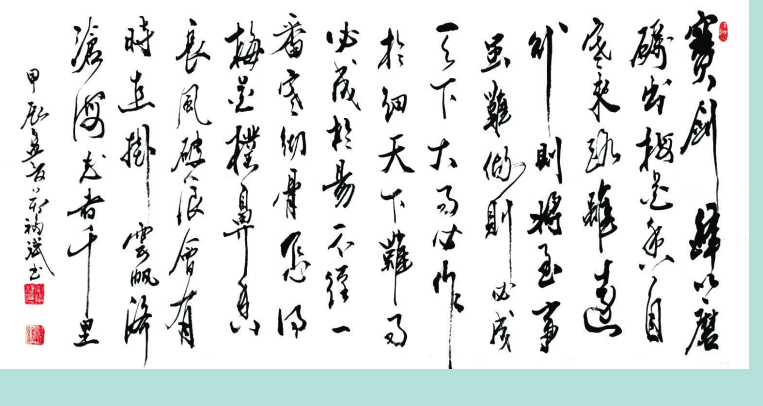 寶劍鋒从磨
礪出梅花香自
寒来路雖遠
行則將至事
虽難做則必成
天下大事必作
於细天下難事
必成於易不經一
番寒彻骨怎得
梅花撲鼻香
長風破浪會有
時直掛雲帆濟
滄海千里
甲辰書